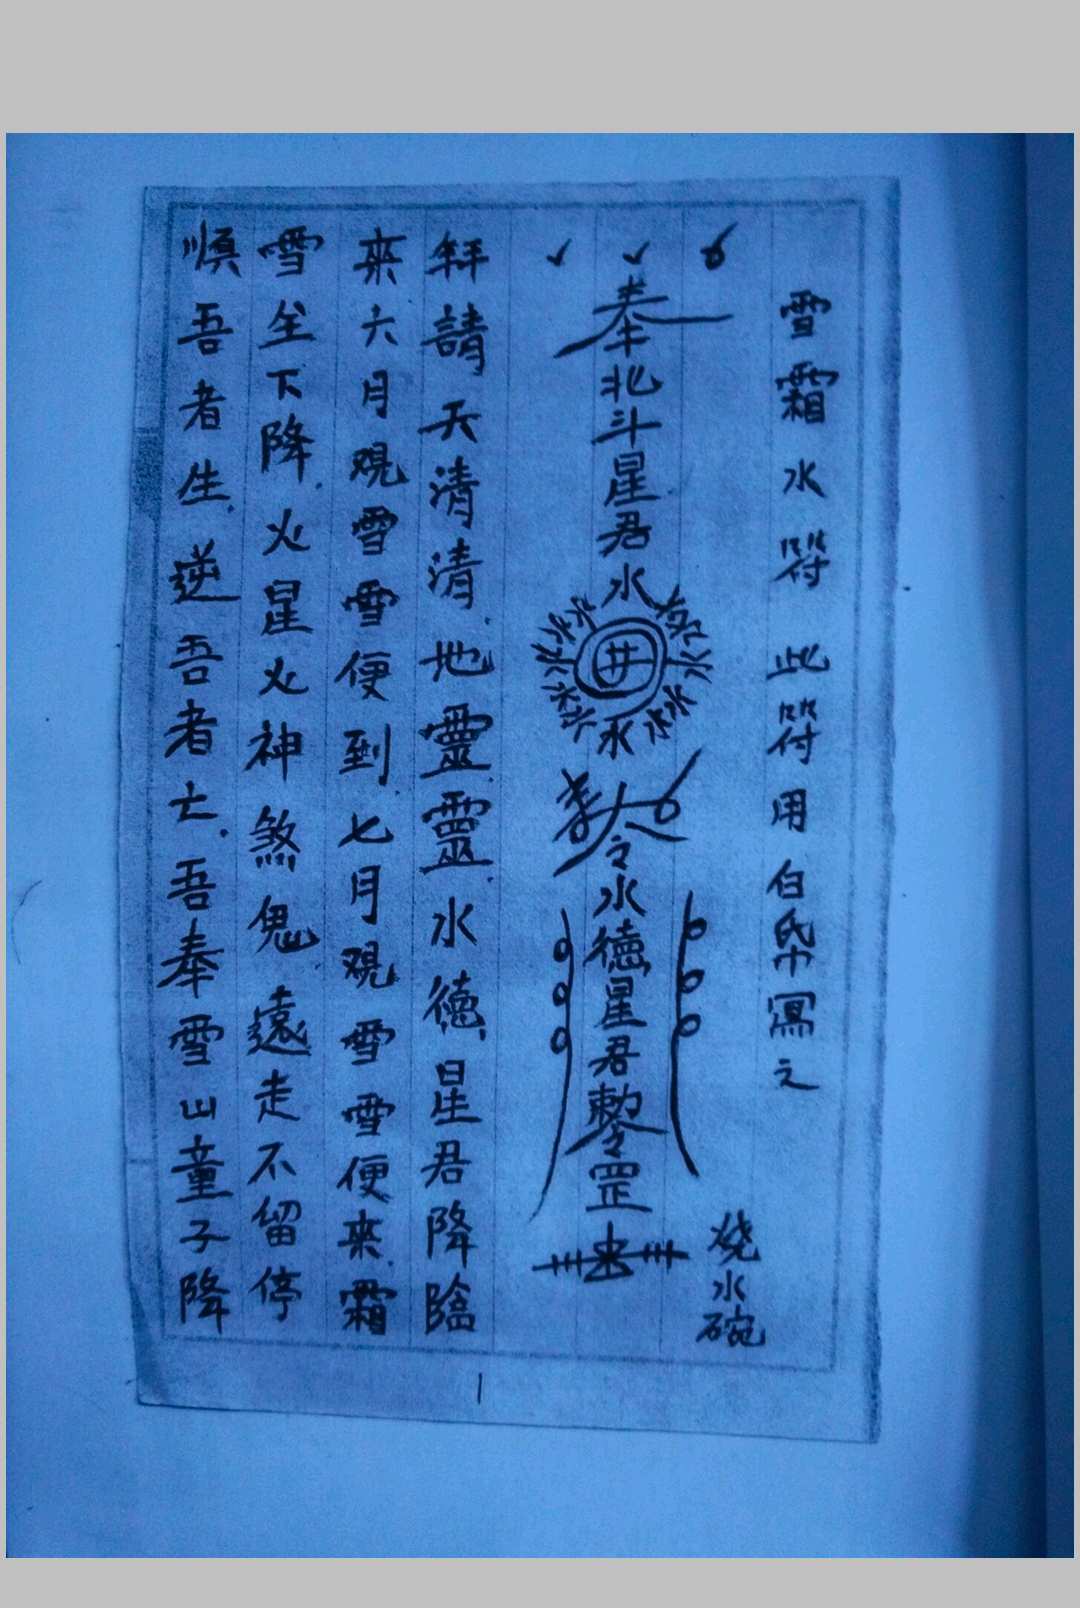 雪霜水符 此符用白帋寫之
奉北斗星君水
井
水
令水德星君勅令罡
燒水碗
拜請天清清地靈靈水德星君降臨
來六月观雪雪便到七月观雪雪便來霜
雪坐下降火星火神煞鬼遠走不留停
順吾者生逆吾者亡吾奉雪山童子降
1